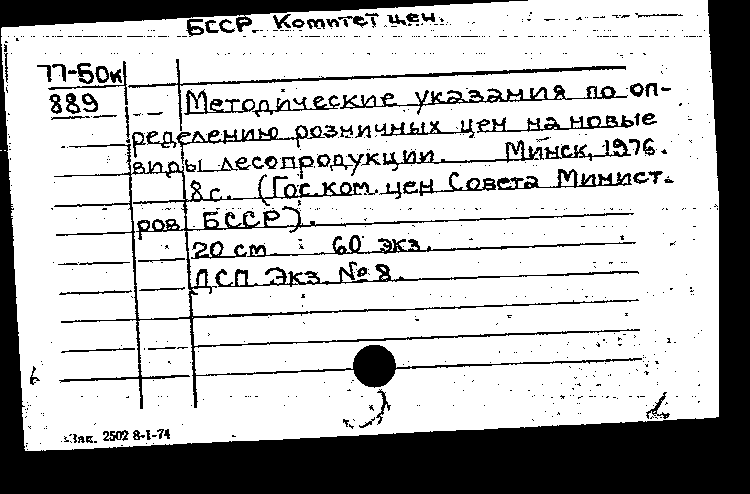 БССР. Комитет цен.
77-50к
889 Методические указания по оп-
ределению розничных цен на новые
виды лесопродукции. Минск, 1976.
8с. (Гос.ком. цен Совета Минист-
ров БССР).
20 см 60 экз.
ДСП. Экз. № 8.
Зак. 2502 8-I-74